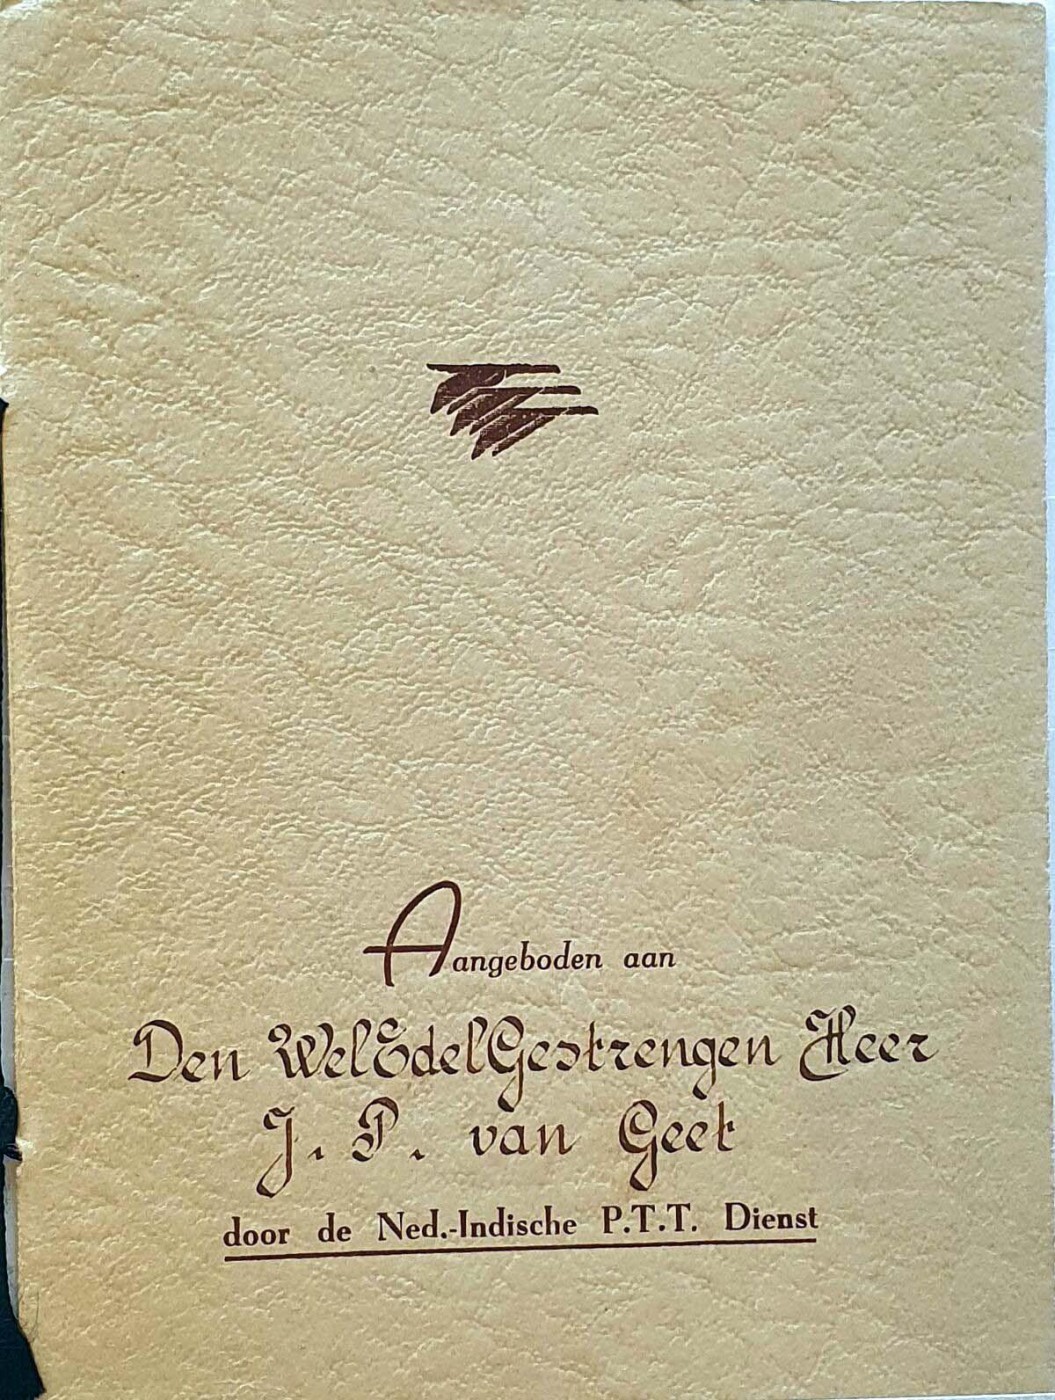 Aangeboden aan
Den WelEdelGestrengen Heer
J. P. van Geet
door de Ned.-Indische P.T.T. Dienst